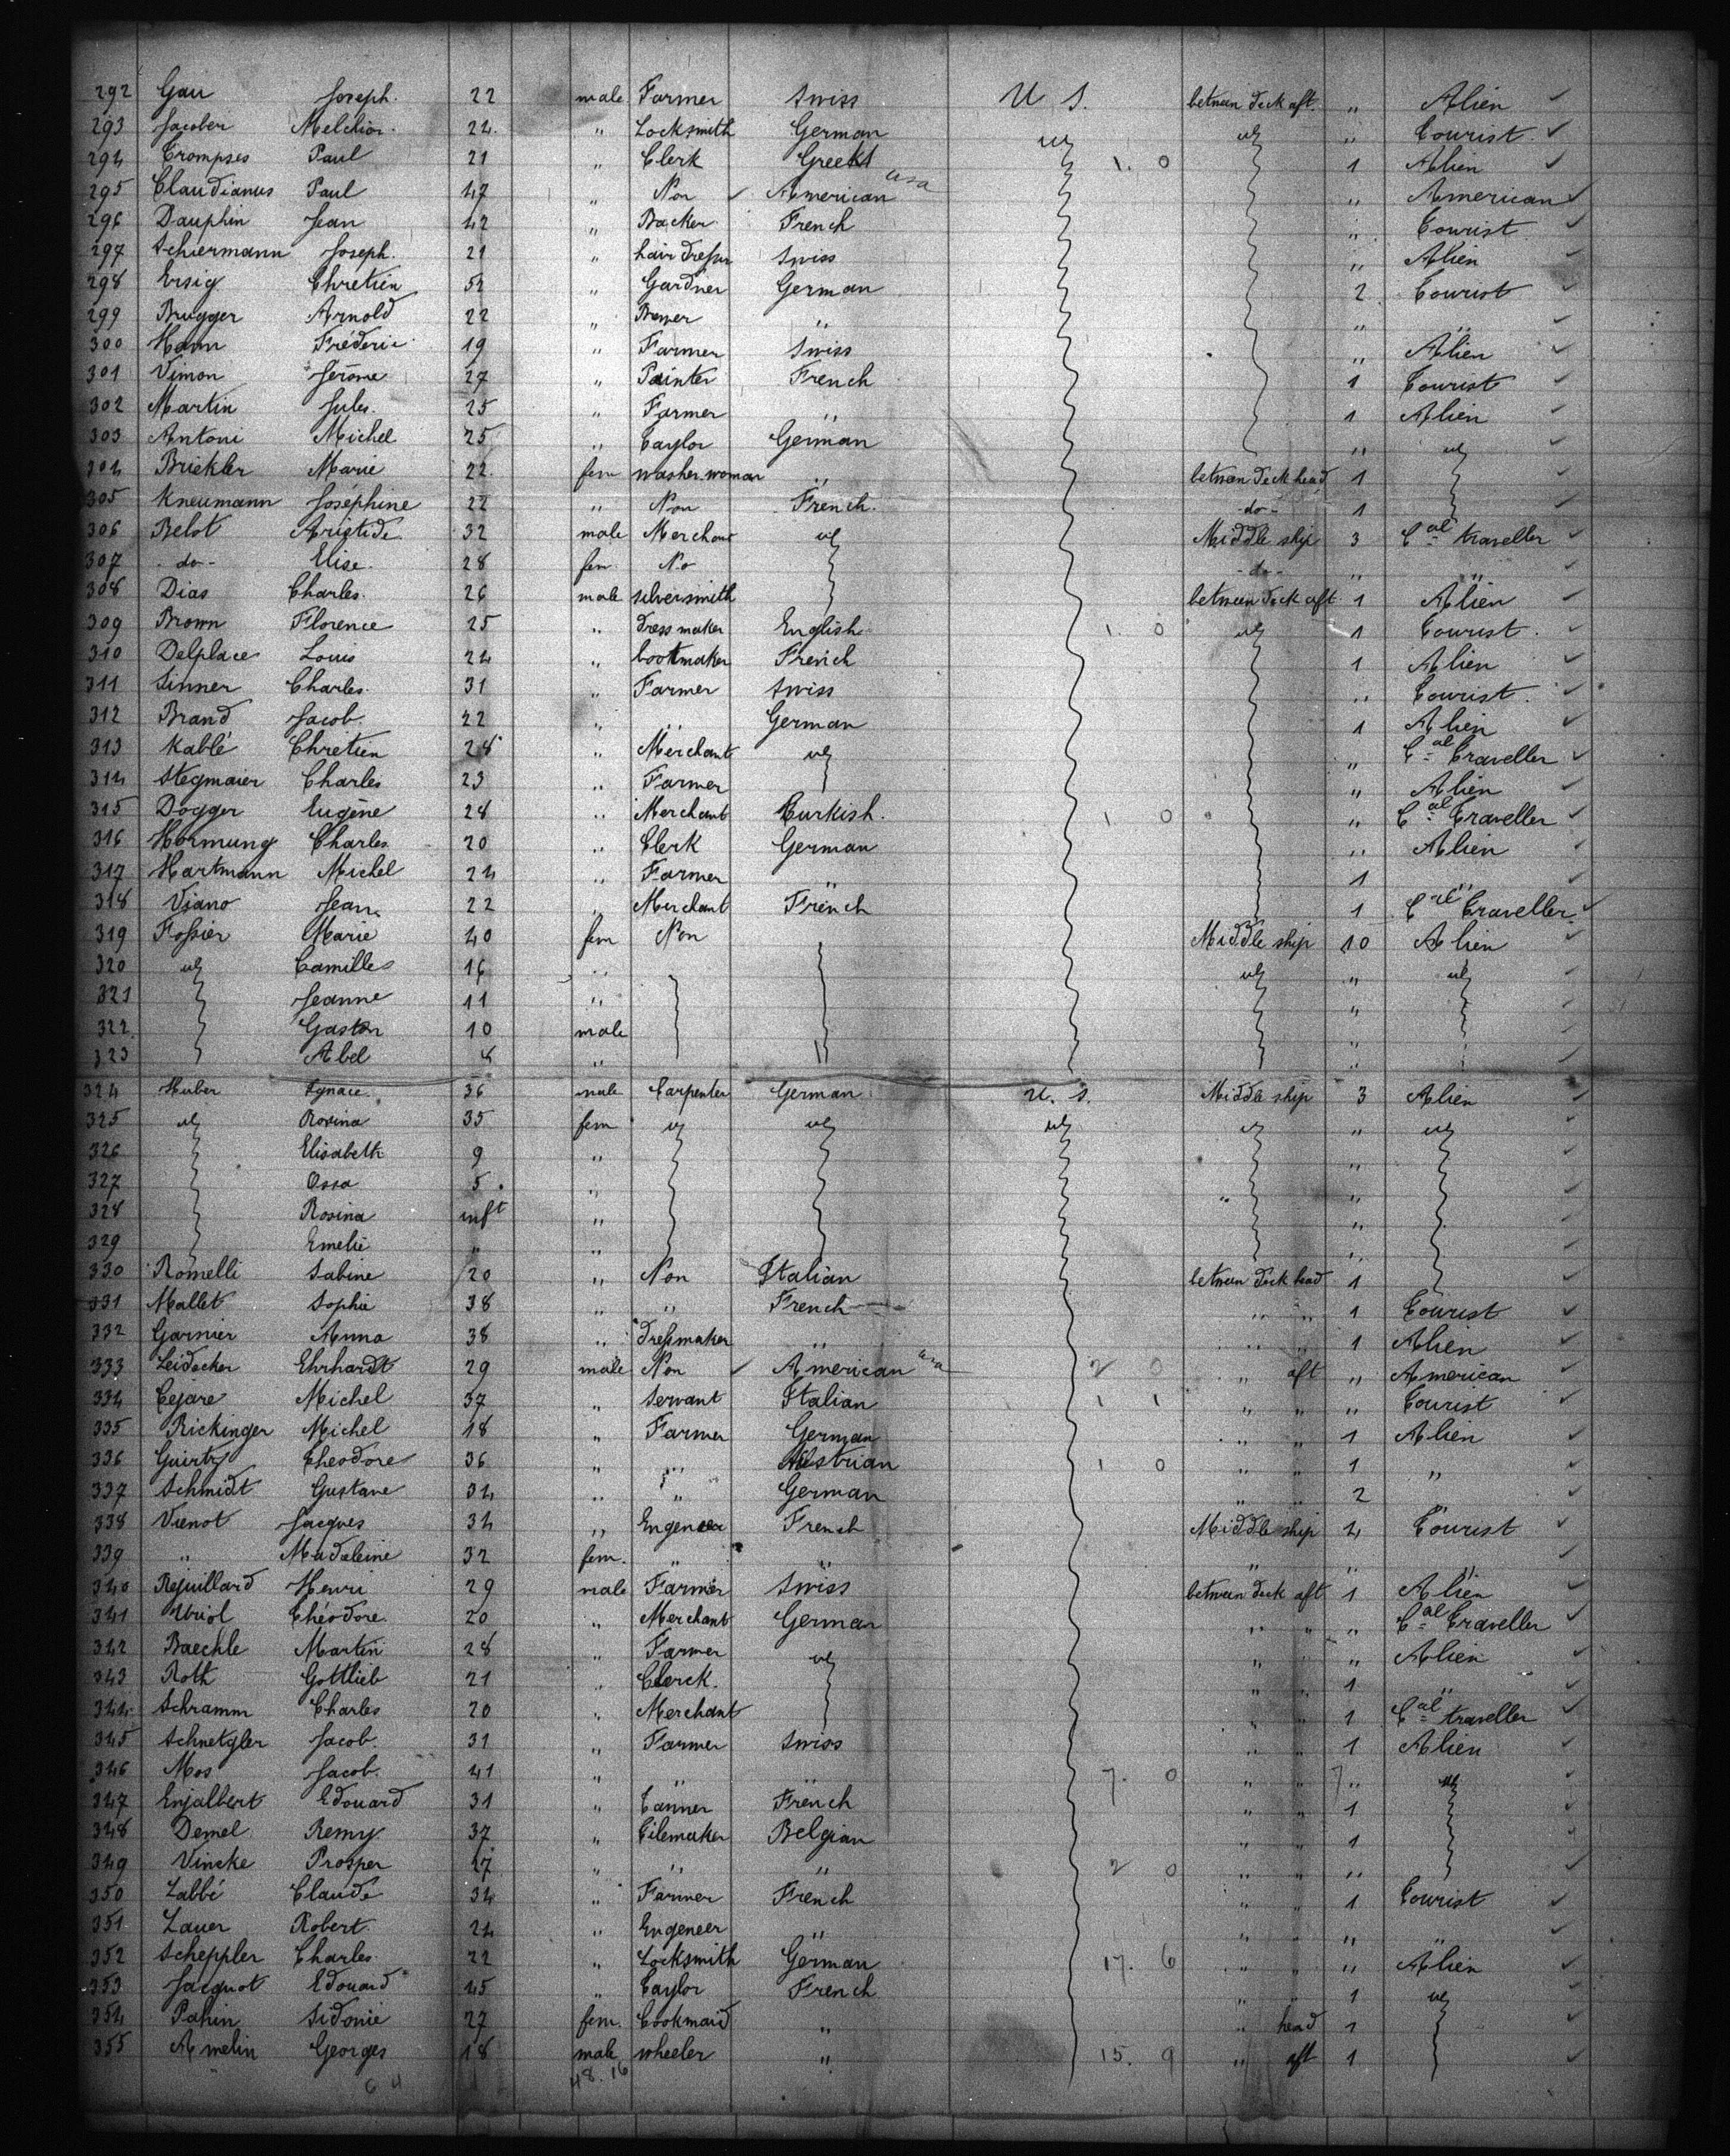 292 Gau Joseph. 22 male Farmer Swiss U S. between deck aft. " Alien
293 Jacober Melchior. 24. " Locksmith German " Tourist.
294 Trompses Paul 21 " Clerk Greeks 1. 0 1 Alien
295 Claudianus Paul 47 " Non American usa " American
296 Dauphin Jean 42 " Backer French " Tourist
297 Schiermann Joseph. 21 " hair dresser Swiss " Alien
298 Ersig Chretien 52 " Gardner German 2 Tourist
299 Brugger Arnold 22 " Brewer " " "
300 Hamm Fréderic 19 " Farmer Swiss " Alien
301 Vimon Jerôme 27 " Painter French 1 Tourist
302 Martin Jules. 25 " Farmer " 1 Alien
303 Antoni Michel 25 " Taylor German "
304 Brickler Marie 22. fem washer-woman " between deck head 1
305 Kneumann Joséphine 22 " Non French. -do- 1
306 Belot Aristide 32 male Merchant Middle ship 3 Cal traveller
307 -do- Elise. 28 fem No -do- " "
308 Dias Charles. 26 male silversmith between deck aft 1 Alien
309 Brown Florence 25 " dress maker English 1. 0 1 Tourist.
310 Delplace Louis 24 " bootmaker French 1 Alien
311 Sinner Charles. 31 " Farmer Swiss " Tourist.
312 Brand Jacob. 22 " " German 1 Alien
313 Kablé Chretien 28 " Merchant " Cal Traveller
314 Stegmaier Charles 23 " Farmer " Alien
315 Dogger Eugène 28 " Merchant Turkish. 1 0 " Cal Traveller
316 Hormung Charles. 20 " Clerk German " Alien
317 Hartmann Michel 24 " Farmer " 1 "
318 Viano Jean 22 " Merchant French 1 Cal Traveller
319 Fossier Marie 40 fem Non Middle ship 10 Alien
320 Camille 16 " "
321 Jeanne 11 " "
322 Gaston 10 male "
323 Abel 8 " "
324 Huber Ignace. 36 male Carpenter German U. S. Middle ship 3 Alien
325 Rosina 35 fem "
326 Elisabeth 9 " "
327 Ossa 5. " "
328 Rosina inft " "
329 Emelie " " "
330 Romelli Sabine 20 " Non Italian between deck head 1
331 Mallet Sophie 38 " " French " " 1 Tourist
332 Garnier Anna 38 " dressmaker " " " 1 Alien
333 Leidecker Ehrhardt 29 male Non American usa 2 0 " aft " American
334 Cejare Michel 37 " Servant Italian 1 1 " " " Tourist
335 Rickinger Michel 18 " Farmer German " " 1 Alien
336 Guirtz Theodore 36 " " Austrian 1 0 " " 1 "
337 Schmidt Gustave 34 " " German " " 2 "
338 Vienot Jacques 34 " Engeneer French Middle ship 4 Tourist
339 " Madeleine 32 fem. " " " " "
340 Rejuillard Henri 29 male Farmer Swiss between deck aft 1 Alien
341 Uriol Théodore 20 " Merchant German " " " Cal Traveller
342 Baechle Martin 28 " Farmer " " " Alien
343 Roth Gottlieb 21 " Clerck. " " 1 "
344 Schramm Charles 20 " Merchant " " 1 Cal traveller
345 Schnetzler Jacob. 31 " Farmer Swiss " " 1 Alien
346 Mos Jacob. 41 " " " 7. 0 " " 7 "
347 Enjalbert Edouard 31 " Tanner French " " 1
348 Demel Remy 37 " Tilemaker Belgian " " 1
349 Vincke Prosper 27 " " " 2 0 " " "
350 Labbé Claude 34 " Farmer French " " 1 Tourist
351 Lauer Robert. 24 " Engeneer " " " " "
352 Scheppler Charles. 22 " Locksmith German 17. 6 " " " Alien
353 Jacquot Edouard 45 " Taylor French " " 1
354 Pahin Sidonie 27 fem. Cookmaid " " head 1
355 Amelin Georges 18 male wheeler " 15. 9 " aft 1
64 48.16